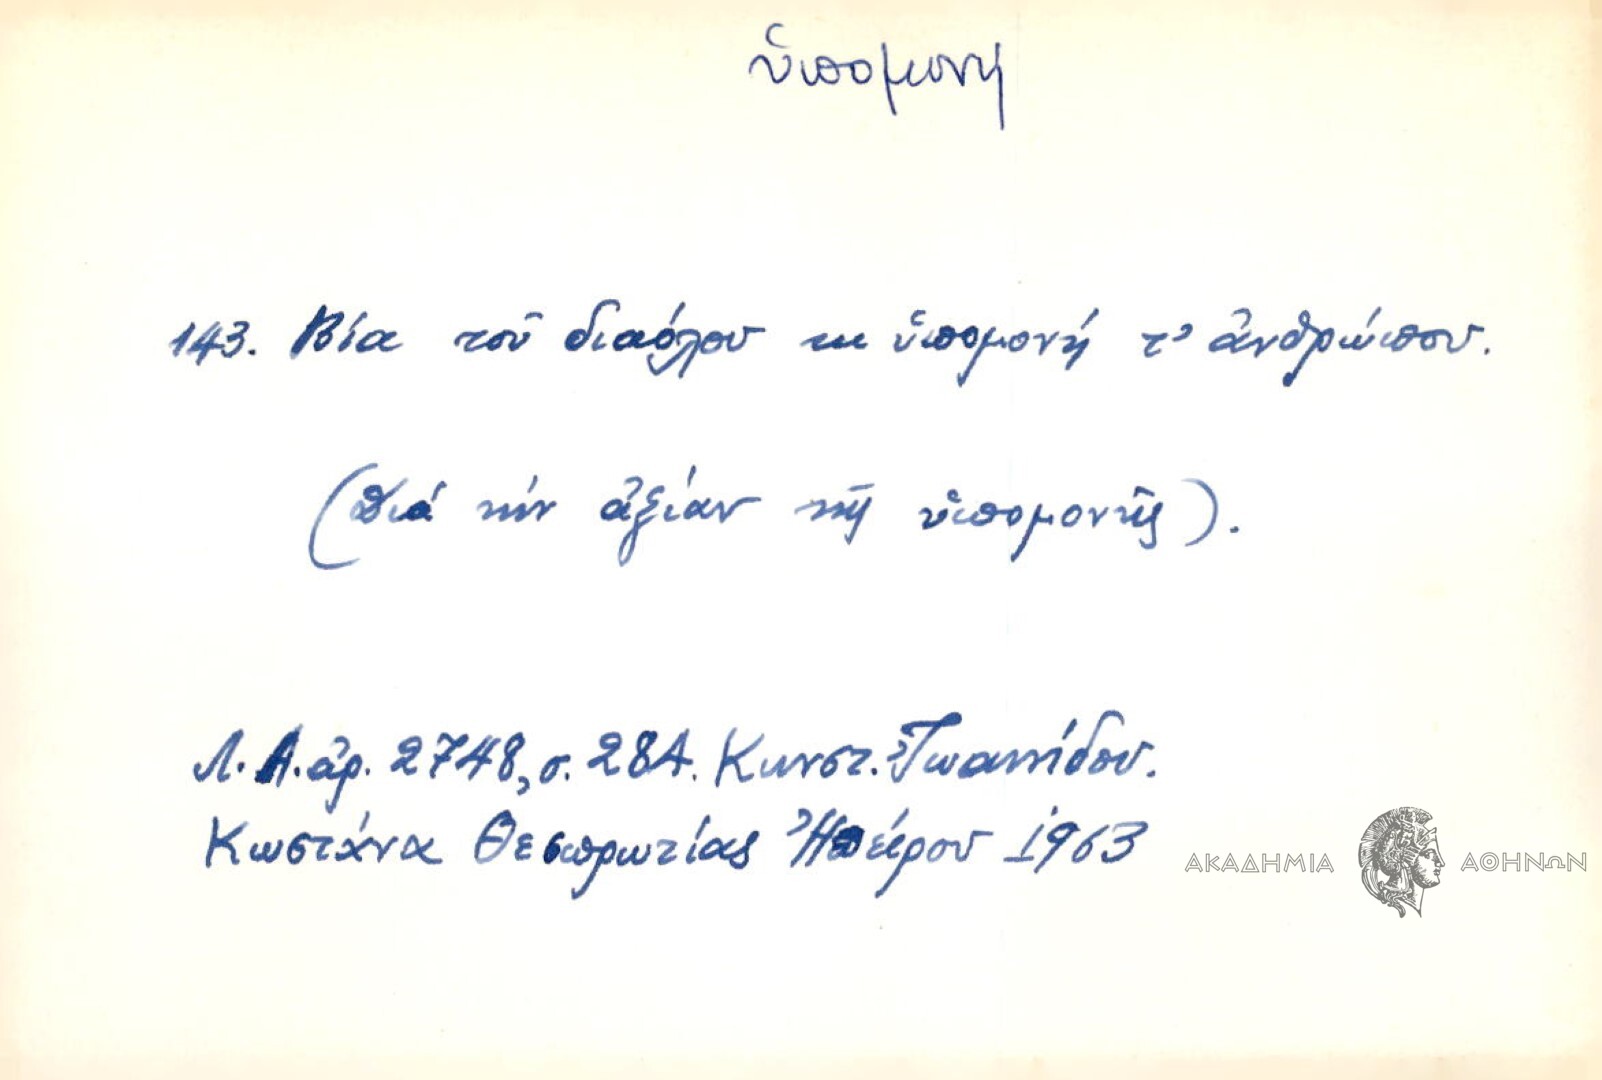 ὑπομονή
143. Βία τοῦ διαόλου κι ὑπομονή τ' ἀνθρώπου.
(Διά τήν ἀξίαν τῆς ὑπομονῆς).
Λ.Α. ἀρ. 2748, σ. 284. Κωνστ. Ἰωαννίδου.
Κωστάνα Θεσπρωτίας Ἠπείρου 1963
ΑΚΑΔΗΜΙΑ ΑΘΗΝΩΝ